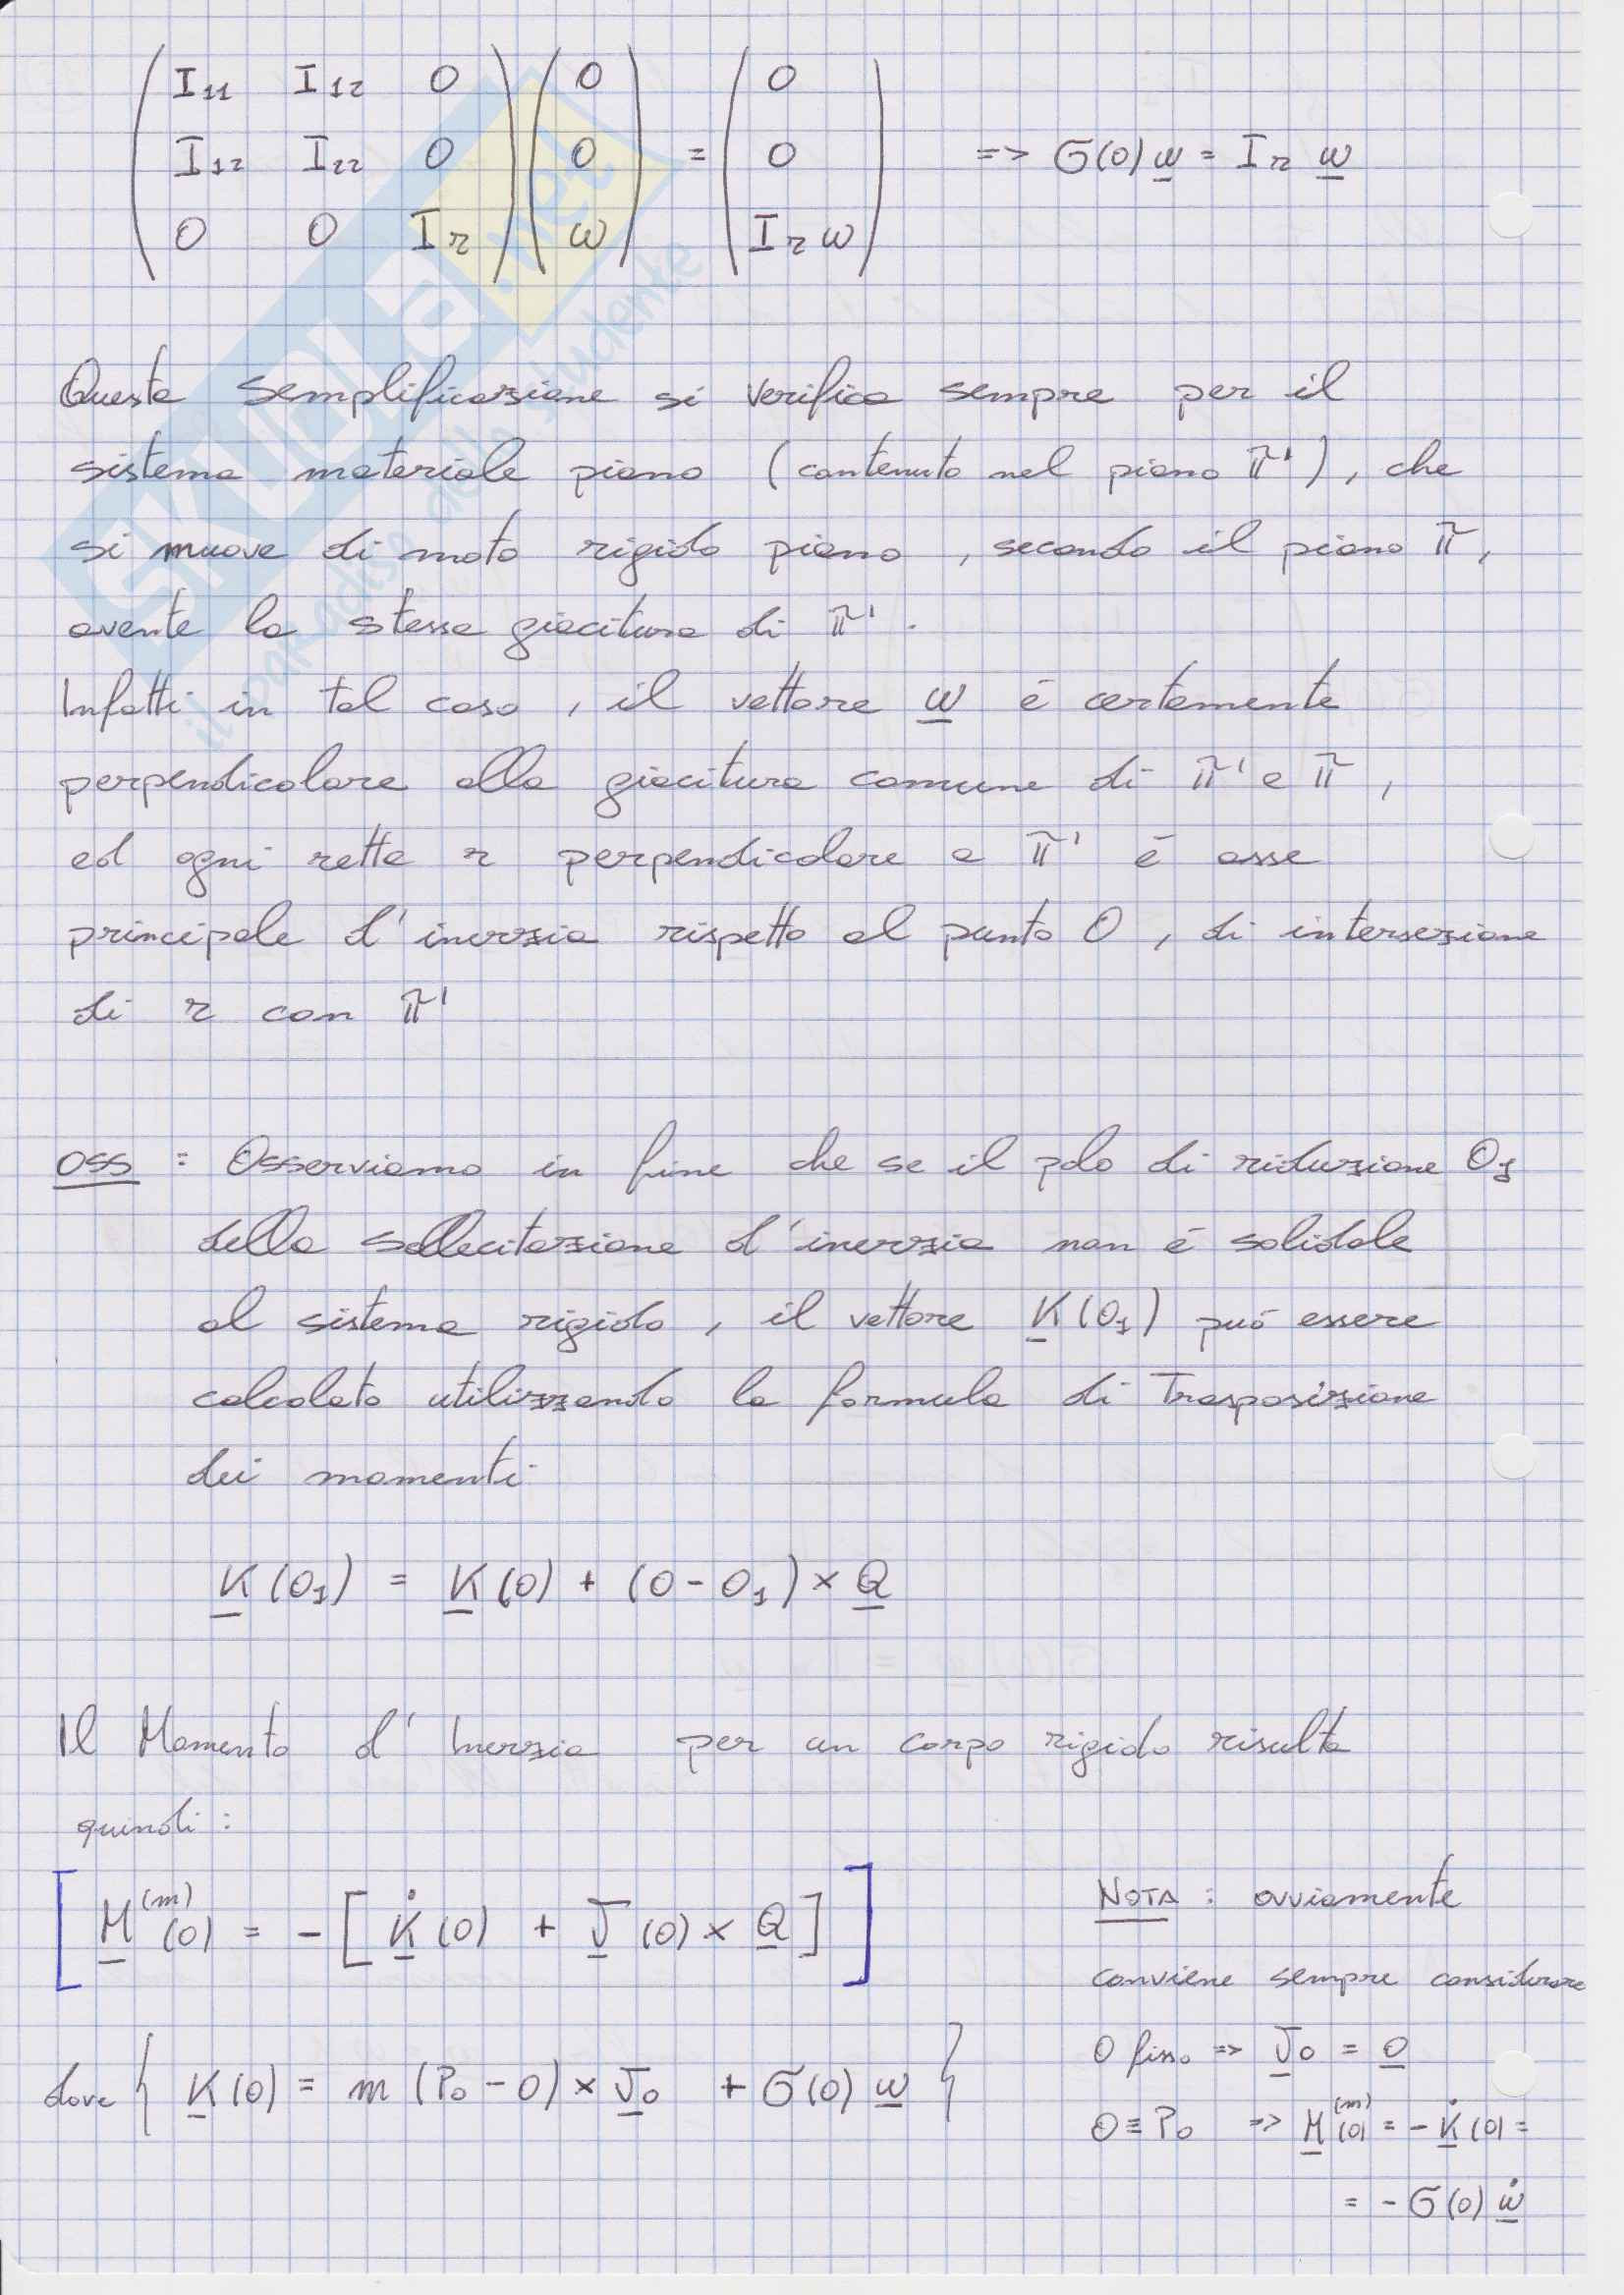 ( I₁₁ I₁₂ 0 ) ( 0 ) ( 0 )
( I₁₂ I₂₂ 0 ) ( 0 ) = ( 0 ) => σ(O) ω = Iᵣ ω
( 0 0 Iᵣ ) ( ω ) ( Iᵣ ω )
Questa semplificazione si verifica sempre per il
sistema materiale piano (contenuto nel piano π'), che
si muove di moto rigido piano, secondo il piano π,
avente la stessa giacitura di π'.
Infatti in tal caso, il vettore ω é certamente
perpendicolare alla giacitura comune di π' e π,
ed ogni retta r perpendicolare a π' é asse
principale d'inerzia rispetto al punto O, di intersezione
di r con π'
OSS : Osserviamo in fine che se il polo di riduzione O₁
della sollecitazione d'inerzia non é solidale
al sistema rigido, il vettore K(O₁) può essere
calcolato utilizzando la formula di Trasposizione
dei momenti
K(O₁) = K(O) + (O - O₁) × Q
Il Momento d'Inerzia per un corpo rigido risulta
quindi :
[ M⁽ᵐ⁾(O) = - [ K̇(O) + v(O) × Q ] ]
dove { K(O) = m (P₀ - O) × v₀ + σ(O) ω }
NOTA : ovviamente
conviene sempre considerare
O fisso => v₀ = 0
O ≡ P₀ => M⁽ᵐ⁾(O) = - K̇(O) =
= - σ(O) ω̇
SKUOLA.net
il paradiso dello studente